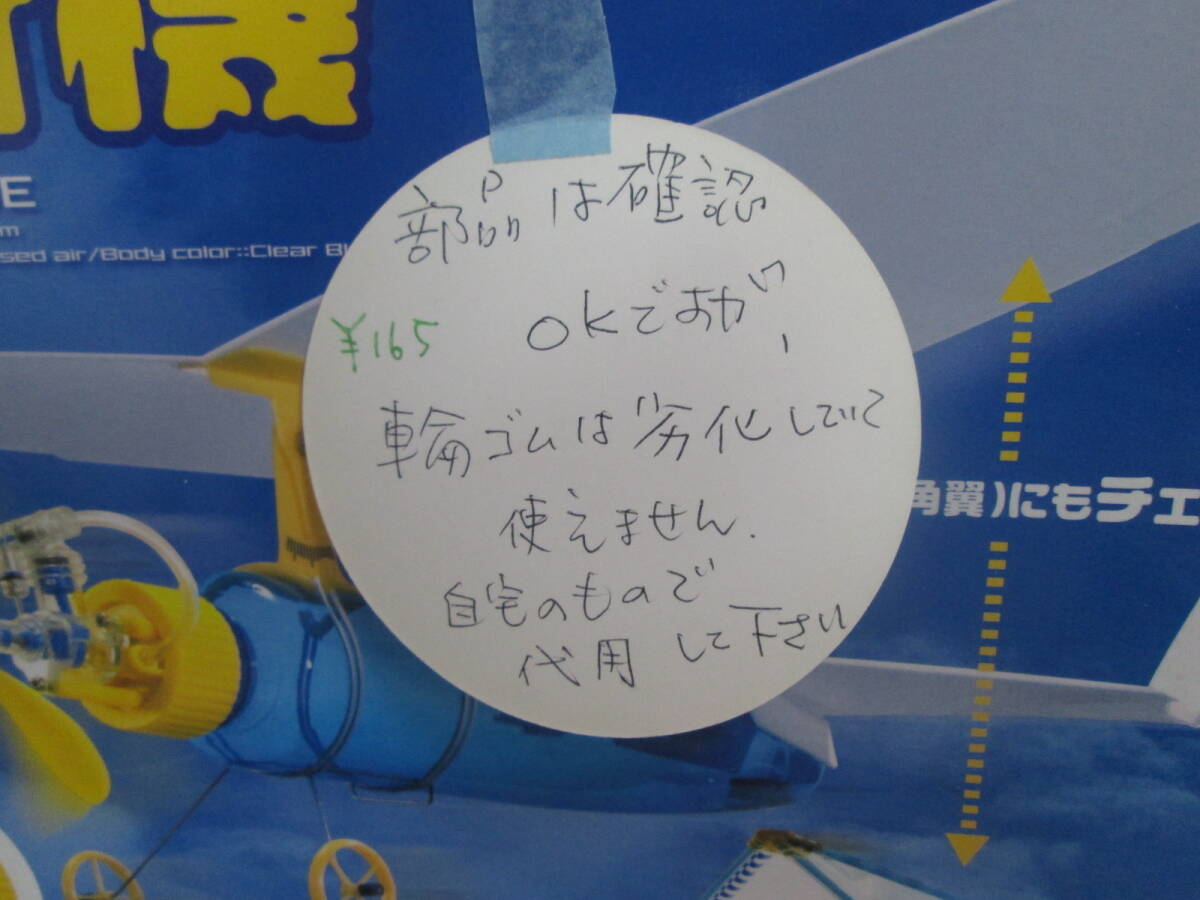 機
E
m
sed air/Body color::Clear Bl
部品は確認
OKですが、
¥165
輪ゴムは劣化していて
使えません.
自宅のもので
代用して下さい
角翼)にもチェ